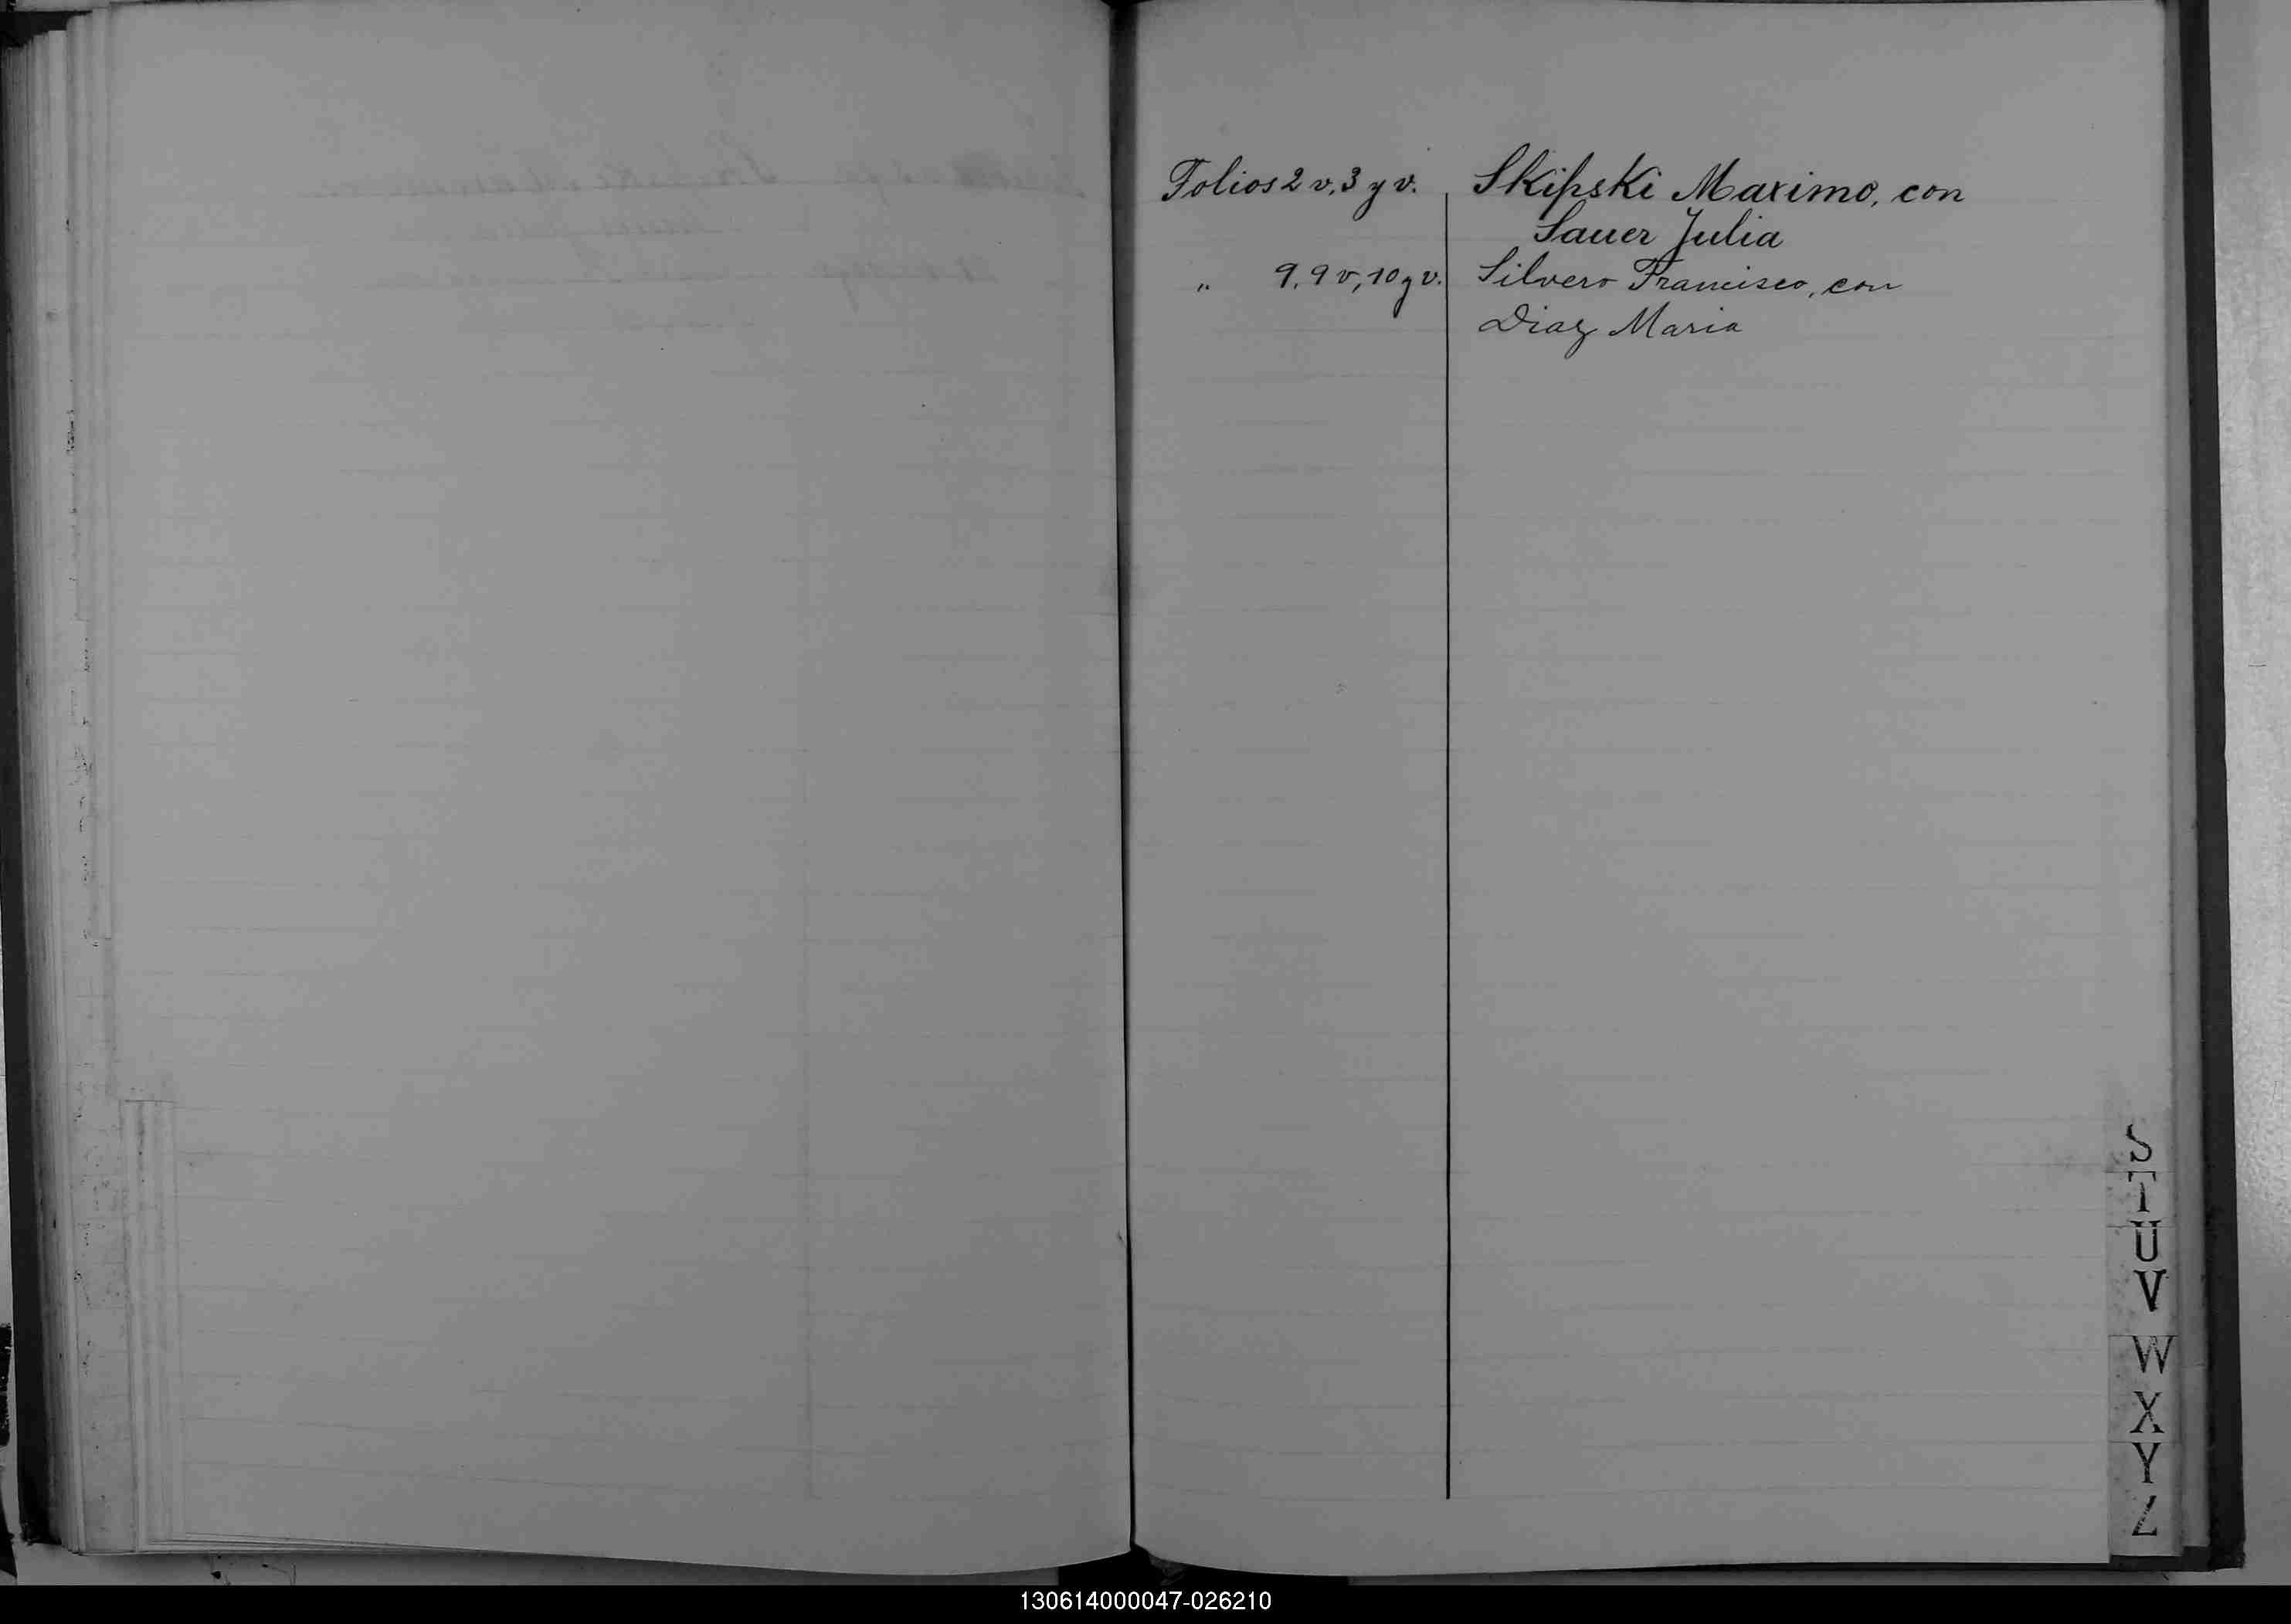 Folios 2 v, 3 y v. Skipski Maximo, con
Sauer Julia
" 9, 9 v, 10 y v. Silvero Francisco, con
Diaz Maria
S
T
U
V
W
X
Y
Z
130614000047-026210